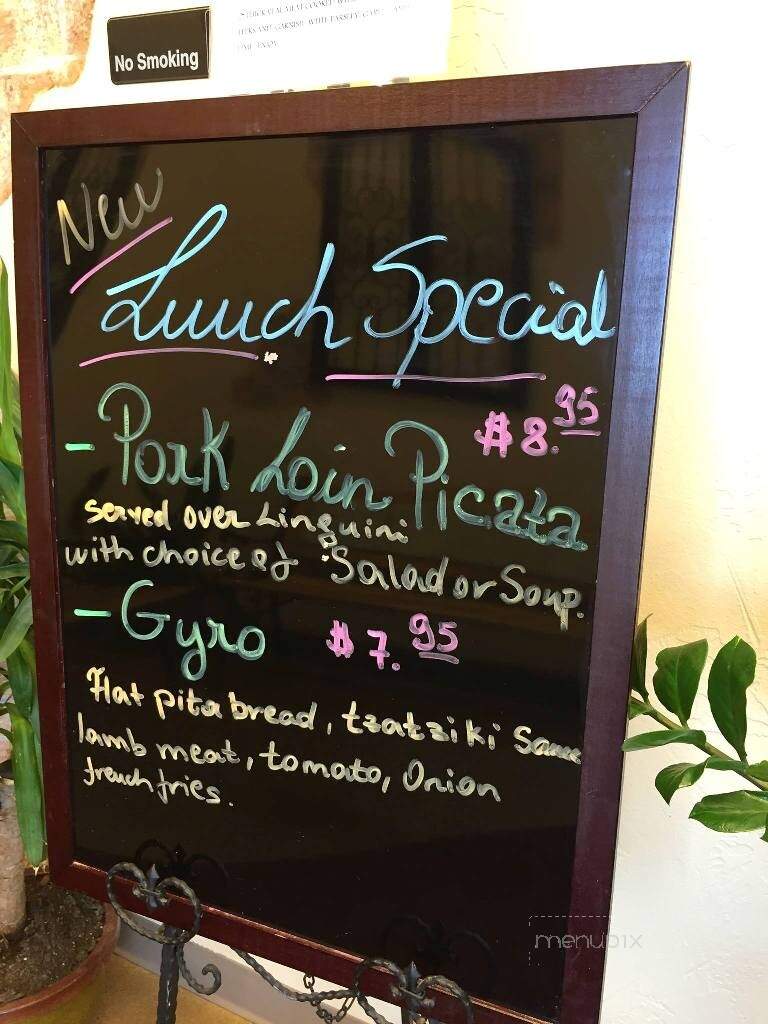 No Smoking
New
Lunch Special
- Pork Loin Picata $8.95
served over Linguini
with choice of Salad or Soup.
- Gyro $7.95
Flat pita bread, tzatziki Sauce
lamb meat, tomato, Onion
french fries.
menupix